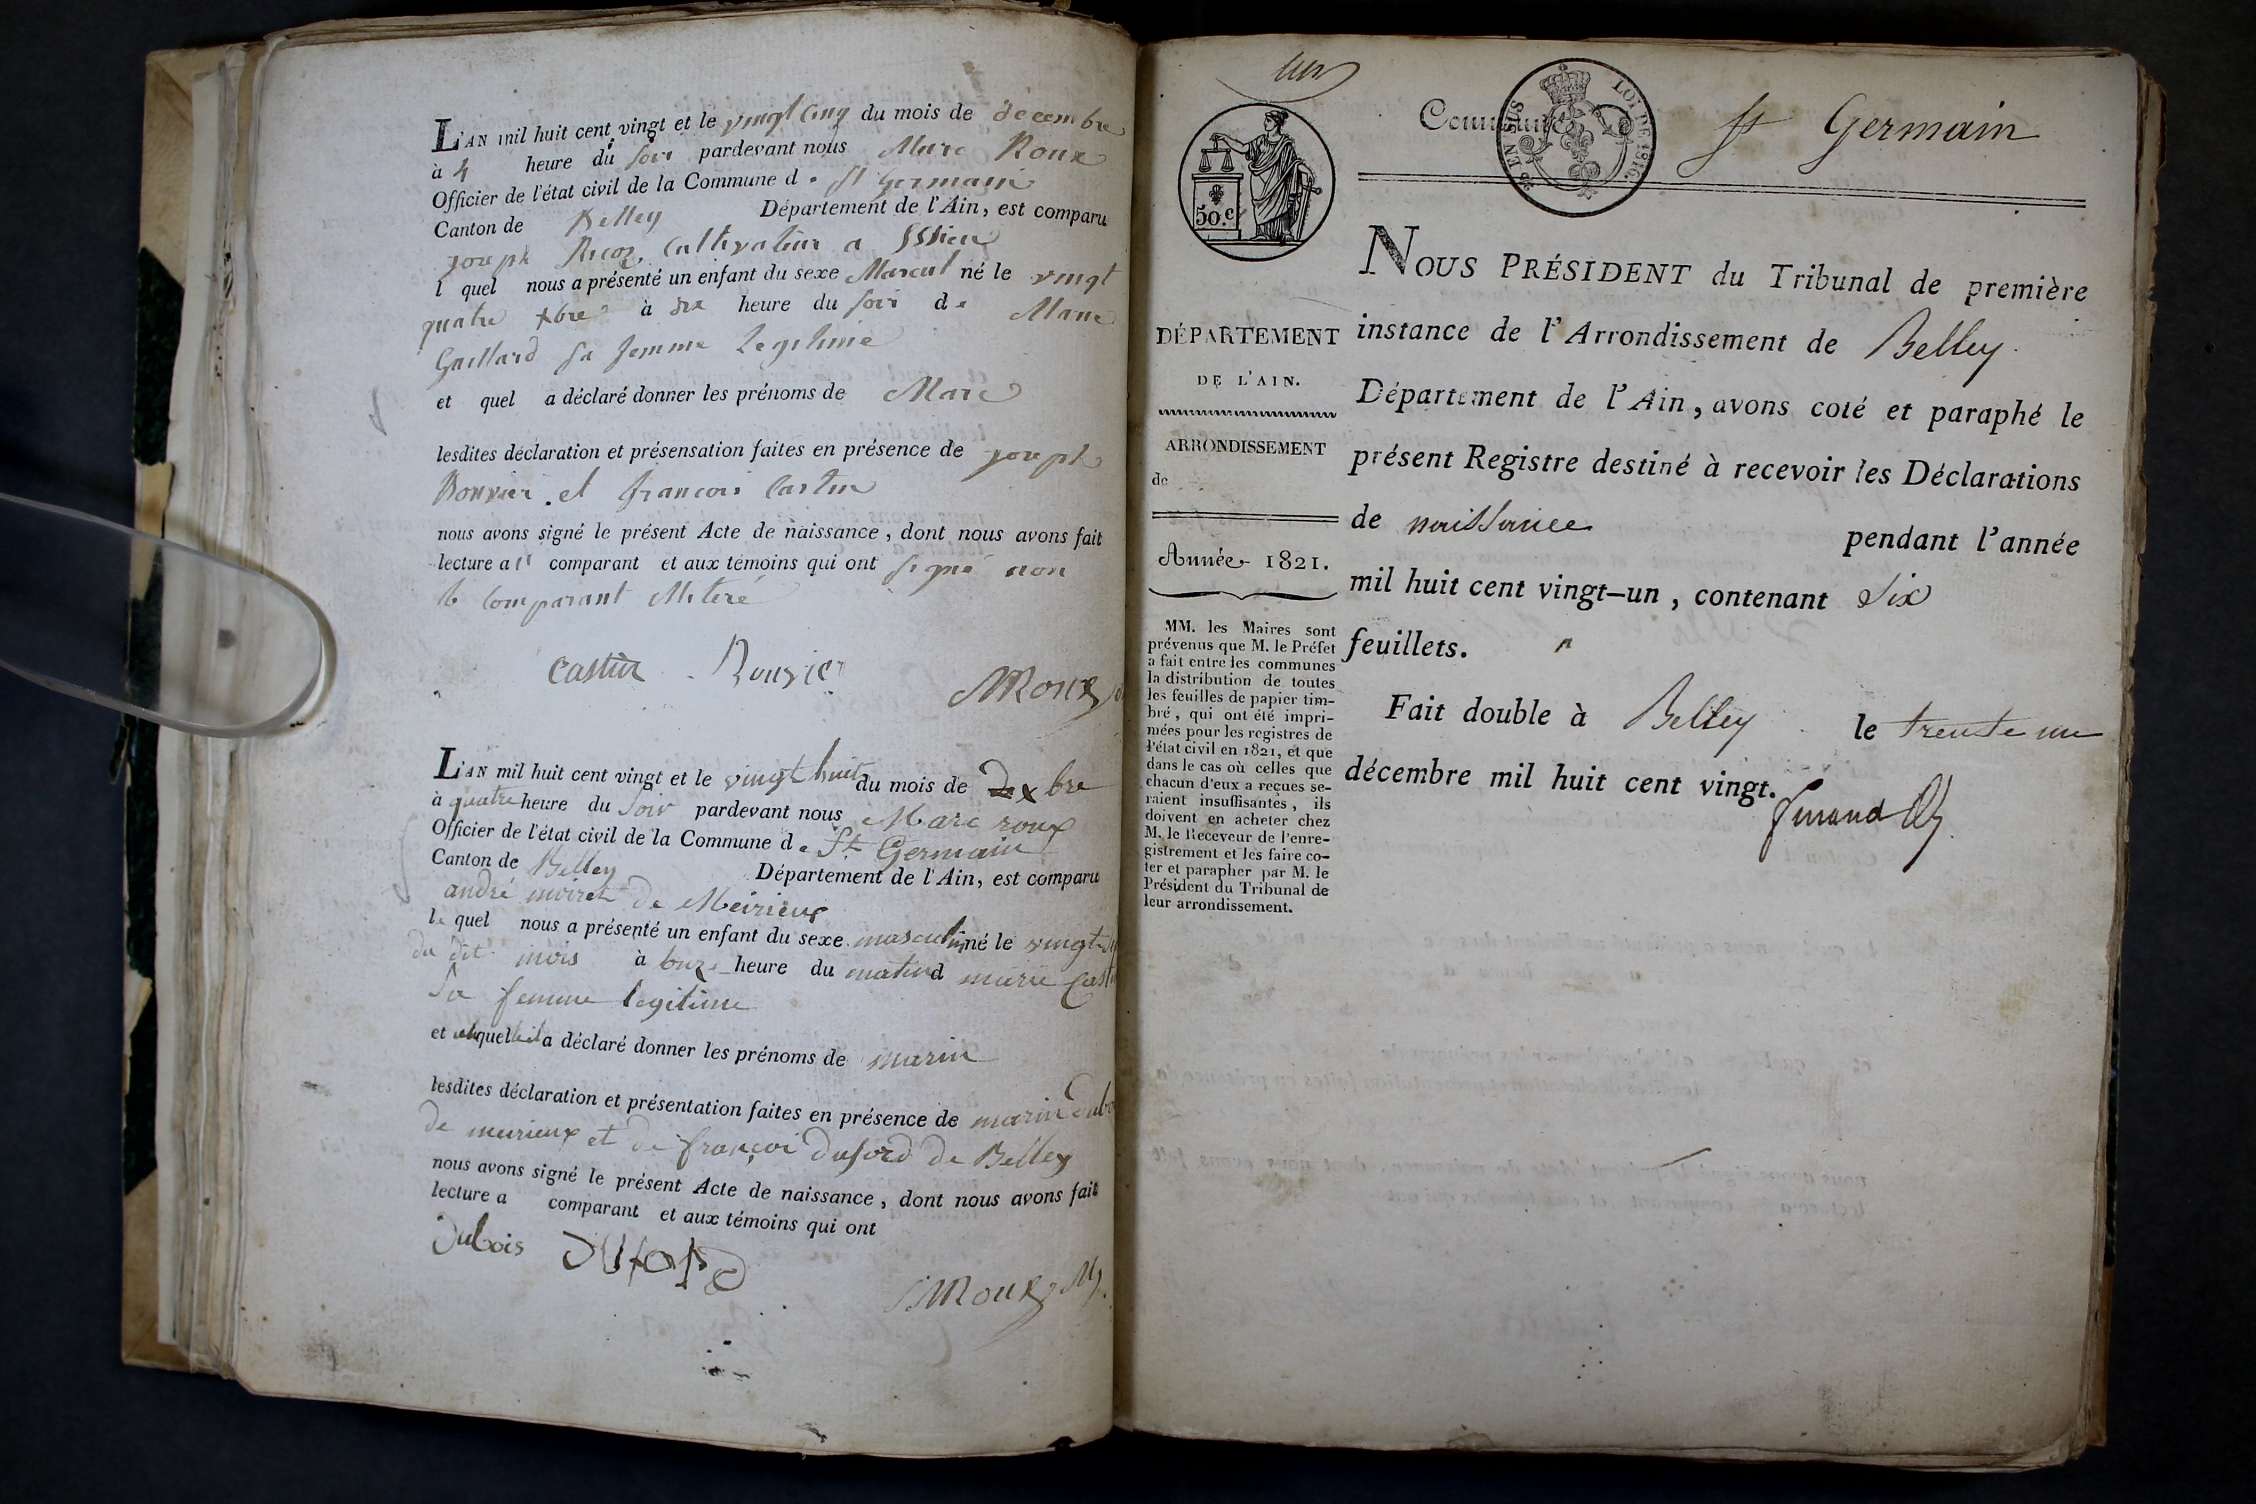 L'AN mil huit cent vingt et le vingt cinq du mois de decembre
à 4 heure du soir pardevant nous Marc Roux
Officier de l'état civil de la Commune de St Germain
Canton de Belley Département de l'Ain, est comparu
joseph Ricoz, Cultivateur a
l quel nous a présenté un enfant du sexe Mascul né le vingt
quatre xbre à dix heure du soir de Marie
Gaillard sa femme Legitime
et quel a déclaré donner les prénoms de Marc
lesdites déclaration et présensation faites en présence de joseph
Bouvier et françois Castin
nous avons signé le présent Acte de naissance, dont nous avons fait
lecture au comparant et aux témoins qui ont signé non
le Comparant
castin Bouvier
MRoux
L'AN mil huit cent vingt et le vingt huit du mois de xbre
à quatre heure du soir pardevant nous Marc roux
Officier de l'état civil de la Commune de St Germain
Canton de Belley Département de l'Ain, est comparu
andré moiret de Meirieux
le quel nous a présenté un enfant du sexe masculin né le vingt
du dit mois à onze heure du matin d marie
Sa femme legitime
et quel a déclaré donner les prénoms de marin
lesdites déclaration et présentation faites en présence de marin
de meirieux et de françoi duford de Belley
nous avons signé le présent Acte de naissance, dont nous avons fait
lecture a comparant et aux témoins qui ont
dubois duford
MRoux
Commune St Germain
25 EN SUS
LOI DE 1816.
50.c
DÉPARTEMENT
DE L'AIN.
ARRONDISSEMENT
de
Année 1821.
MM. les Maires sont
prévenus que M. le Préfet
a fait entre les communes
la distribution de toutes
les feuilles de papier tim-
bré, qui ont été impri-
mées pour les registres de
l'état civil en 1821, et que
dans le cas où celles que
chacun d'eux a reçues se-
raient insuffisantes, ils
doivent en acheter chez
M. le Receveur de l'enre-
gistrement et les faire co-
ter et parapher par M. le
Président du Tribunal de
leur arrondissement.
NOUS PRÉSIDENT du Tribunal de première
instance de l'Arrondissement de Belley
Département de l'Ain, avons coté et paraphé le
présent Registre destiné à recevoir les Déclarations
de naissance pendant l'année
mil huit cent vingt-un, contenant Six
feuillets.
Fait double à Belley le trente un
décembre mil huit cent vingt.